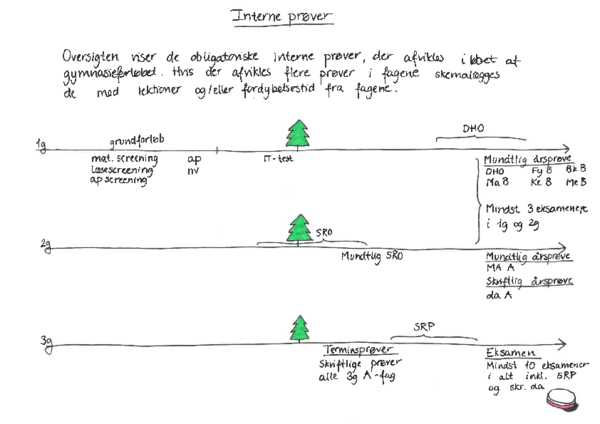 Interne prøver
Oversigten viser de obligatoriske interne prøver, der afvikles i løbet af
gymnasieforløbet. Hvis der afvikles flere prøver i fagene skemalægges
de med lektioner og/eller fordybelsestid fra fagene.
DHO
grundforløb
1g
mat. screening ap IT-test
læsescreening nv
ap screening
Mundtlig årsprøve
DHO Fy B Bk B
Ma B Ke B Me B
Mindst 3 eksamener
i 1g og 2g
SRO
2g
Mundtlig SRO
Mundtlig årsprøve
MA A
Skriftlig årsprøve
da A
SRP
3g
Terminsprøver
Skriftlige prøver
alle 3g A-fag
Eksamen
Mindst 10 eksamener
i alt inkl. SRP
og skr. da